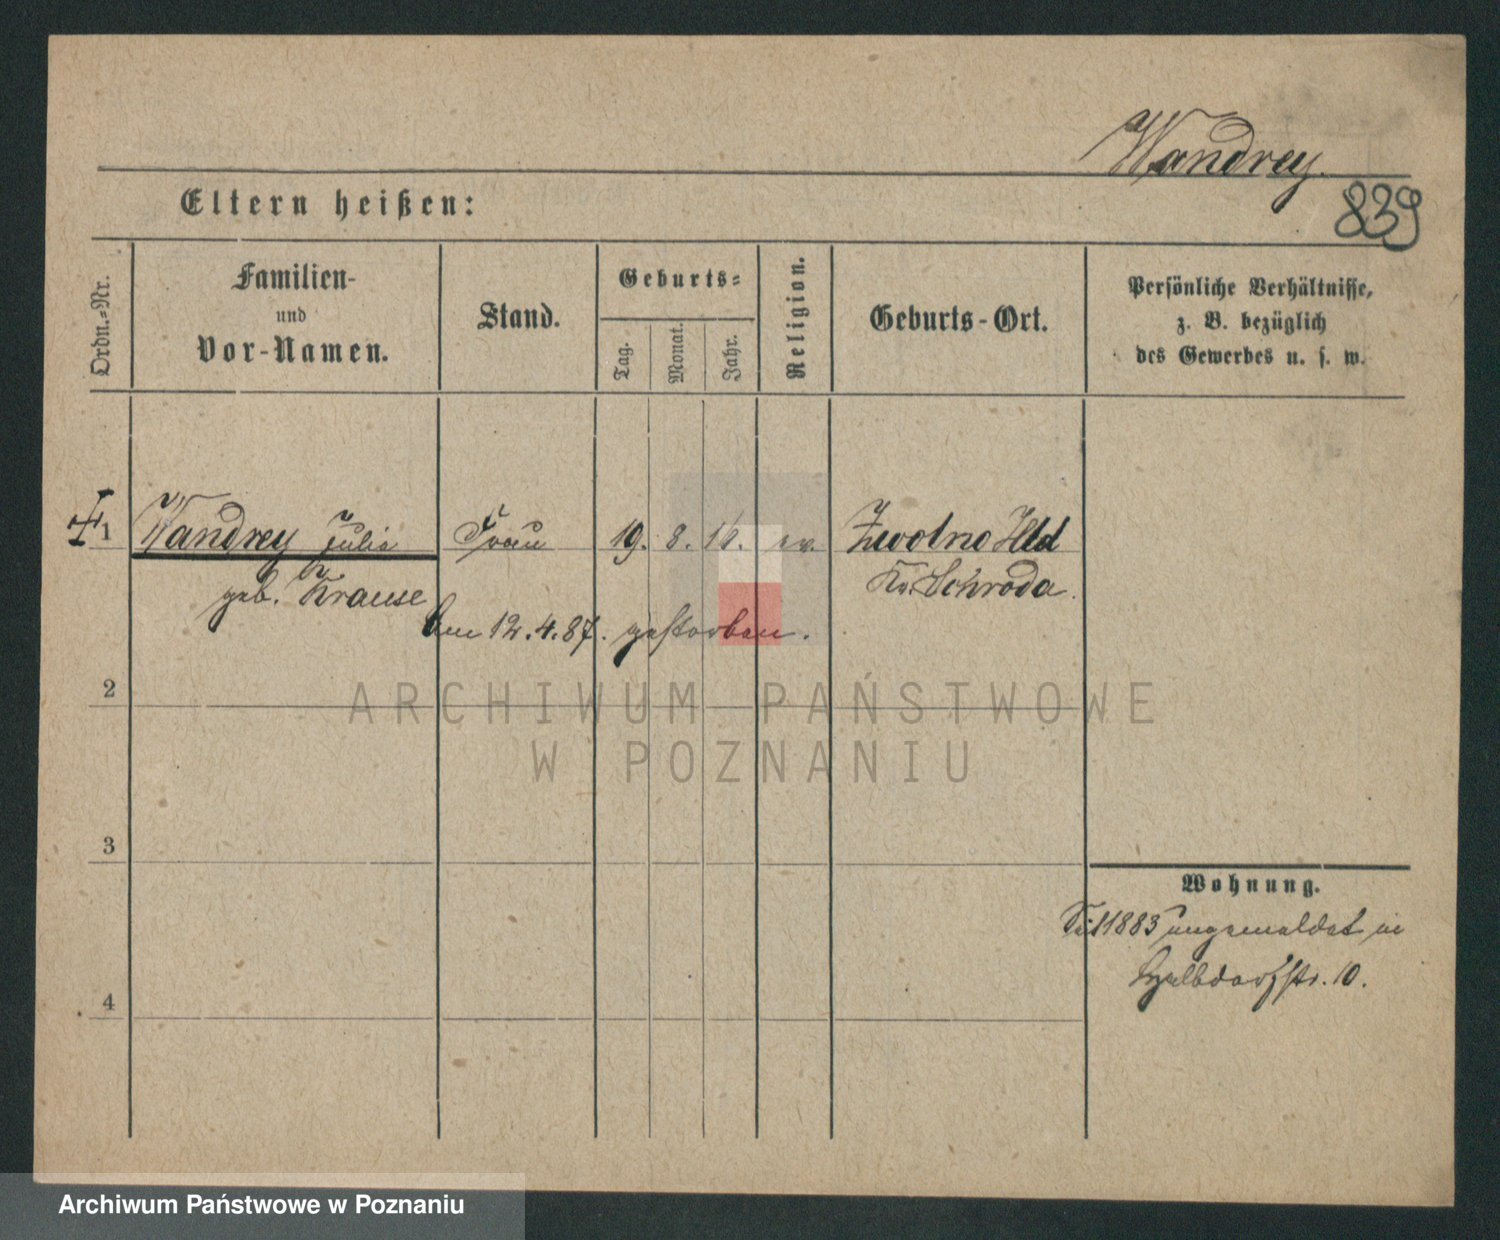 Wandrey.
839
Eltern heißen:
Ordn.-Nr.
Familien-
und
Vor-Namen.
Stand.
Geburts-
Tag.
Monat.
Jahr.
Religion.
Geburts-Ort.
Persönliche Verhältnisse,
z. B. bezüglich
des Gewerbes u. s. w.
1 Wandrey Julie Frau 19. 8. ev. Zwolno Hld
geb. Krause Kr. Schroda.
am 12.4.87. gestorben.
2
ARCHIWUM PAŃSTWOWE
W POZNANIU
3
Wohnung.
1883 angemeldet in
Halbdorfstr. 10.
4
Archiwum Państwowe w Poznaniu